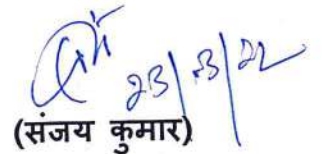 23/3/22
(संजय कुमार)